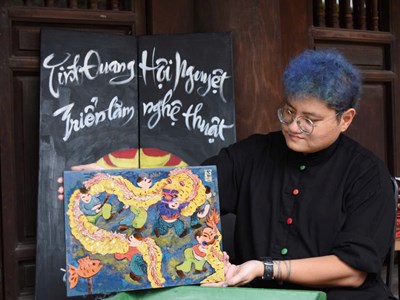 Tinh Quang Hội Nguyệt
Triển lãm nghệ thuật